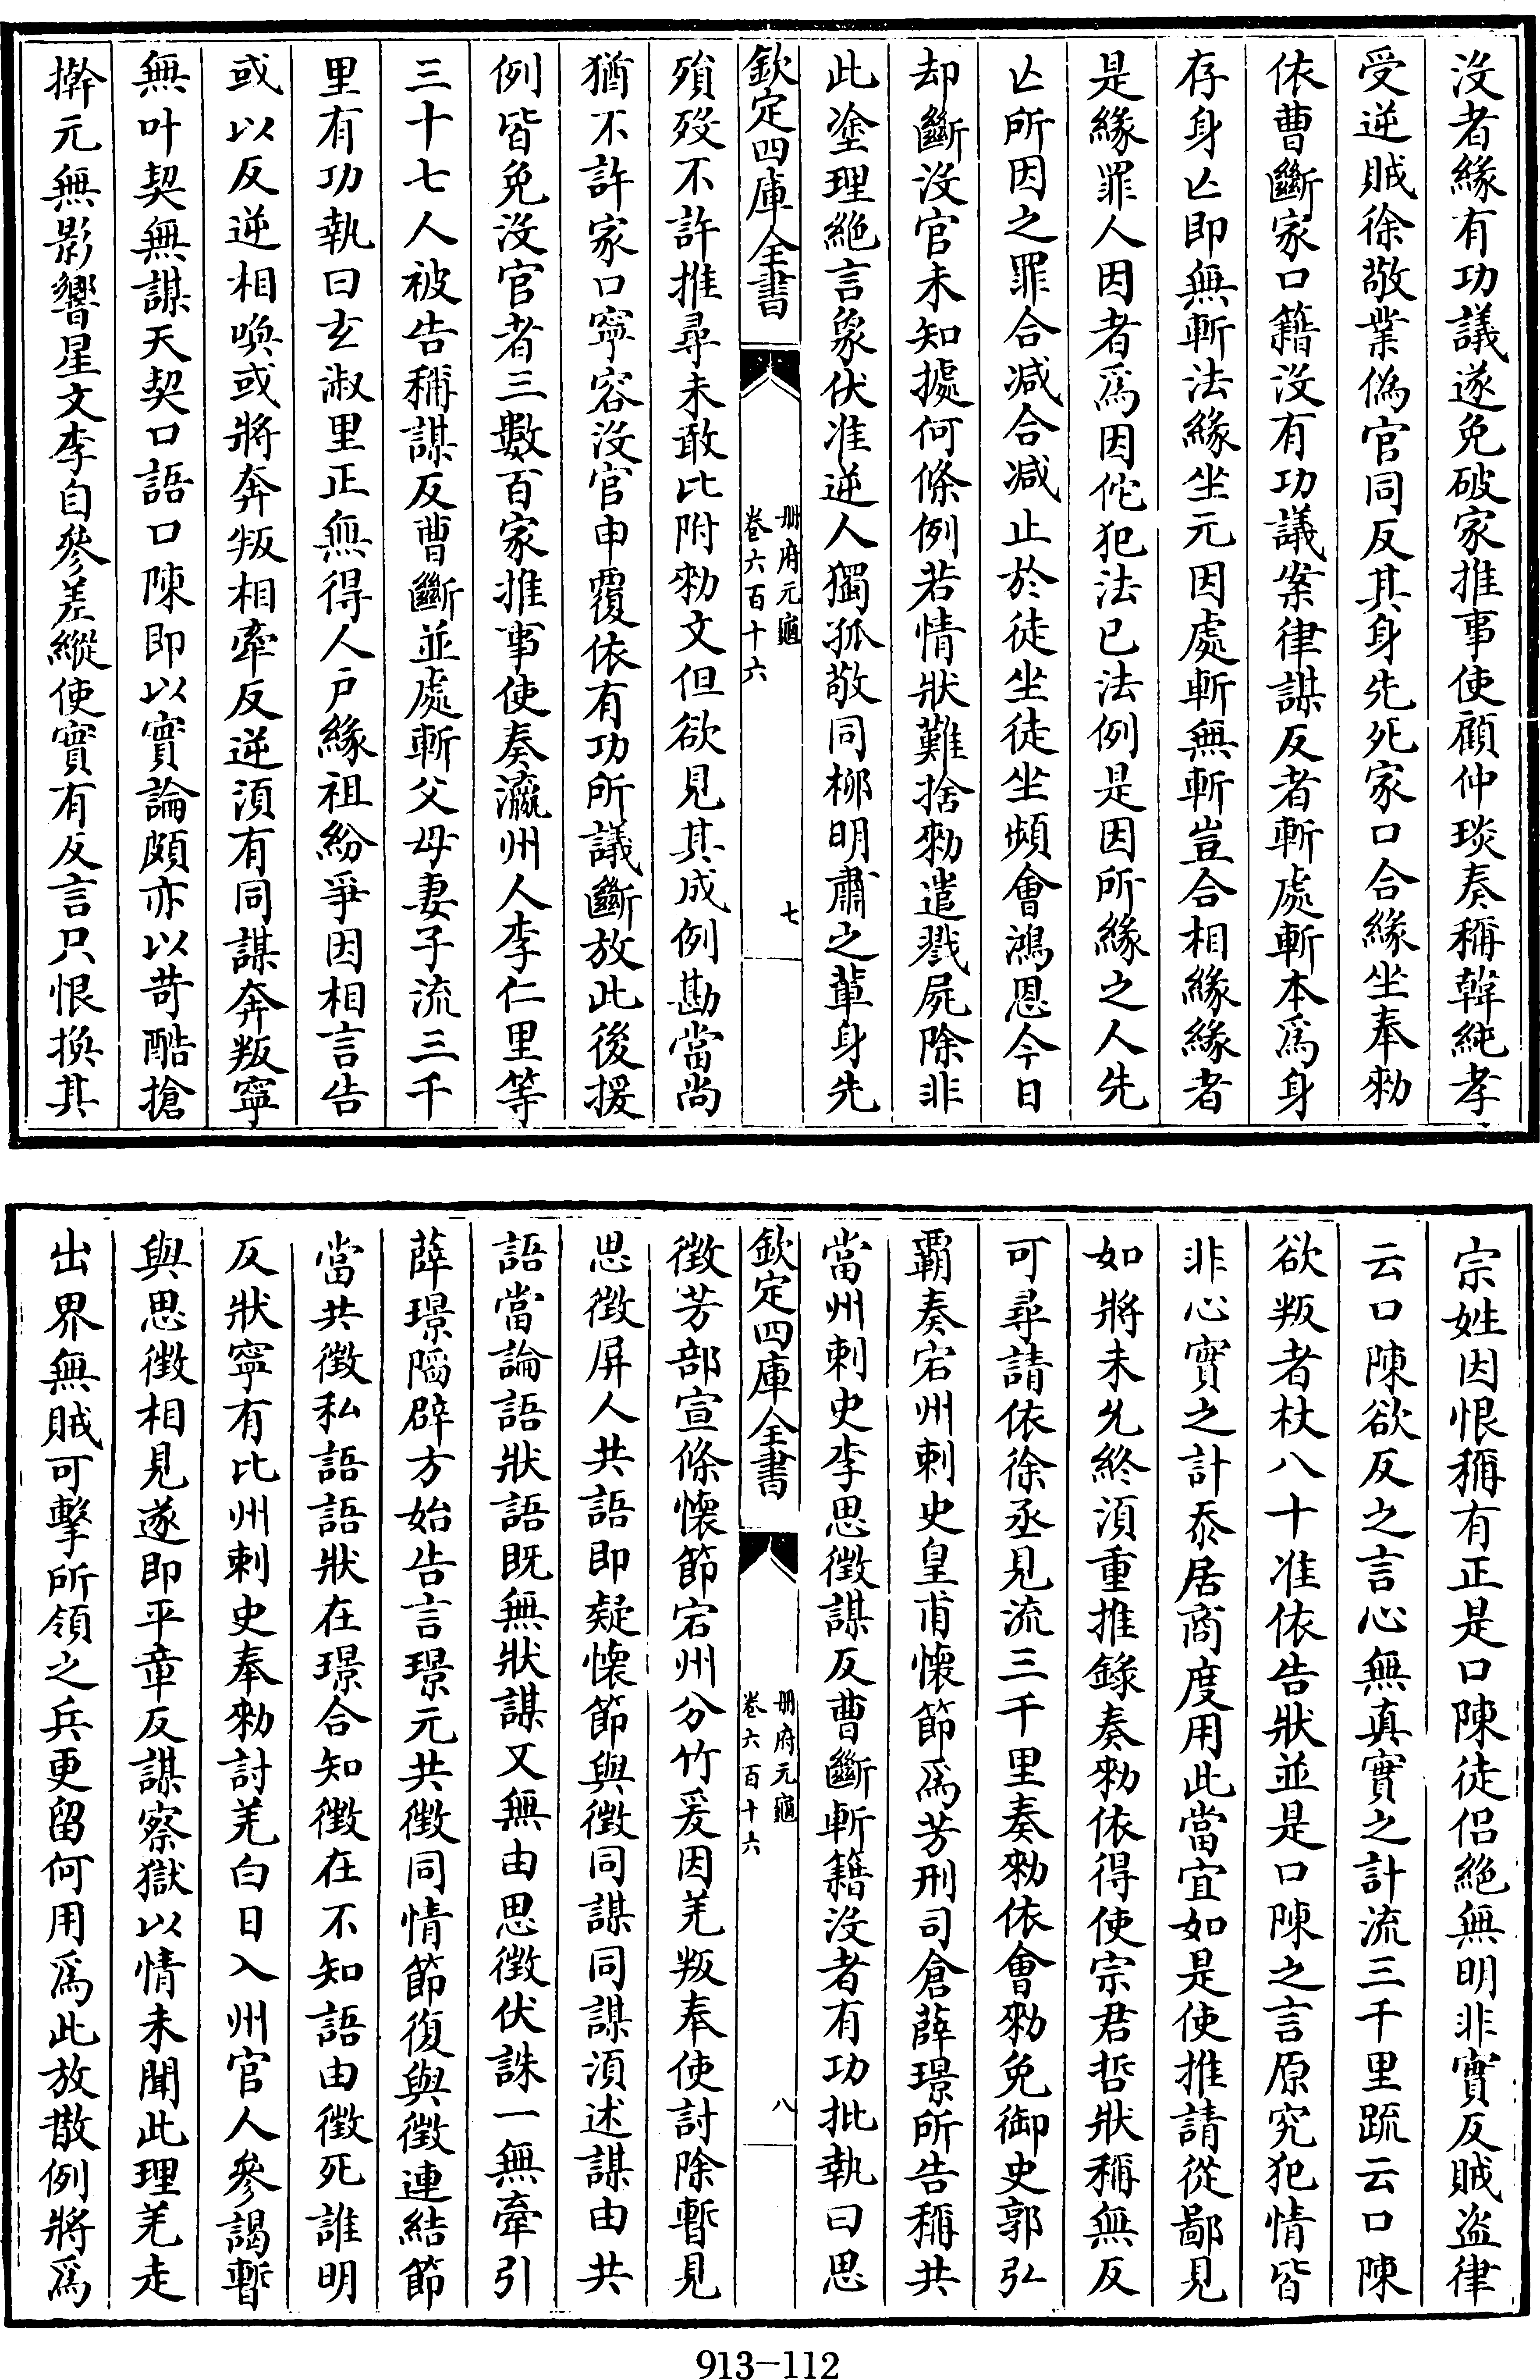 没者緣有功議遂免破家推事使顧仲琰奏稱韓純孝
受逆賊徐敬業偽官同反其身先死家口合緣坐奉勑
依曹斷家口籍没有功議案律謀反者斬處斬本爲身
存身亡即無斬法緣坐元因處斬無斬豈合相緣緣者
是緣罪人因者爲因佗犯法已法例是因所緣之人先
亡所因之罪合减合减止於徒坐徒坐頻會鴻恩今日
却斷没官未知據何條例若情狀難捨勑遣戮屍除非
此塗理絶言象伏准逆人獨孤敬同栁明肅之輩身先
欽定四庫全書
册府元龜
卷六百十六
七
殞歿不許推尋未敢比附勑文但欲見其成例勘當尚
猶不許家口寧容没官申覆依有功所議斷放此後援
例皆免没官者三數百家推事使奏瀛州人李仁里等
三十七人被告稱謀反曹斷並處斬父母妻子流三千
里有功執曰玄淑里正無得人户緣祖紛爭因相言告
或以反逆相喚或將奔叛相牽反逆湏有同謀奔叛寧
無叶契無謀天契口語口陳即以實論頗亦以苛酷搶
擀元無影響星文李自參差縱使實有反言只恨換其
宗姓因恨稱有正是口陳徒侣絶無明非實反賊盗律
云口陳欲反之言心無真實之計流三千里疏云口陳
欲叛者杖八十准依告狀並是口陳之言原究犯情皆
非心實之計忝居商度用此當宜如是使推請從鄙見
如將未允終湏重推錄奏勑依得使宗君哲狀稱無反
可尋請依徐丞見流三千里奏勑依會勑免御史郭弘
霸奏宕州刺史皇甫懷節爲芳刑司倉薛璟所告稱共
當州刺史李思徵謀反曹斷斬籍没者有功批執曰思
欽定四庫全書
册府元龜
卷六百十六
八
徵芳部宣條懷節宕州分竹爰因羌叛奉使討除暫見
思徵屏人共語即疑懷節與徵同謀同謀湏述謀由共
語當論語狀語既無狀謀又無由思徵伏誅一無牽引
薛璟隔辟方始告言璟元共徵同情節復與徵連結節
當共徵私語語狀在璟合知徵在不知語由徵死誰明
反狀寧有比州刺史奉勑討羌白日入州官人參謁暫
與思徵相見遂即平章反謀察獄以情未聞此理羌走
出界無賊可擊所領之兵更留何用爲此放散例將爲
913—112